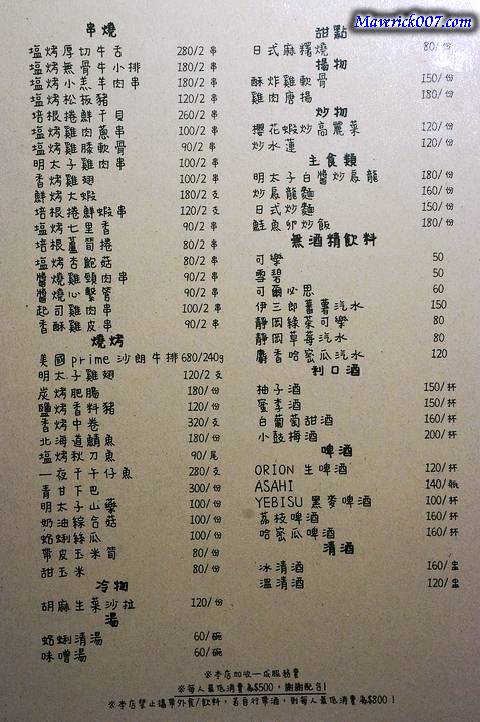 Maverick007.com
串燒
塩烤厚切牛舌 280/2 串
塩烤無骨牛小排 180/2 串
塩烤小羔羊肉串 180/2 串
塩烤松板豬 120/2 串
培根捲鮮干貝 260/2 串
塩烤雞肉蔥串 100/2 串
塩烤雞膝軟骨 90/2 串
明太子雞肉串 100/2 串
香烤雞翅 100/2 串
鮮烤大蝦 180/2 支
培根捲鮮蝦串 120/2 支
塩烤七里香 90/2 串
培根蘆筍捲 80/2 串
塩烤杏鮑菇 80/2 串
醬燒雞頸肉串 90/2 串
醬燒心繫管 90/2 串
起司雞肉串 100/2 串
香酥雞皮串 90/2 串
燒烤
美國prime沙朗牛排 680/240g
明太子雞翅 120/2 支
炭烤肥腸 180/份
鹽烤香料豬 120/份
香烤中卷 320/支
北海道鯖魚 180/份
塩烤秋刀魚 90/尾
一夜干午仔魚 280/支
青甘下巴 300/份
明太子山藥 100/份
奶油綜合菇 100/份
蛤蜊絲瓜 100/份
帶皮玉米筍 80/份
甜玉米 80/份
冷物
胡麻生菜沙拉 120/份
湯
蛤蜊清湯 60/碗
味噌湯 60/碗
甜點
日式麻糬燒 80/份
揚物
酥炸雞軟骨 150/份
雞肉唐揚 180/份
炒物
櫻花蝦炒高麗菜 120/份
炒水蓮 120/份
主食類
明太子白醬炒烏龍 180/份
炒烏龍麵 160/份
日式炒麵 150/份
鮭魚卵炒飯 180/份
無酒精飲料
可樂 50
雪碧 50
可爾必思 60
伊三郎蕃薯汽水 150
靜岡綠茶可樂 80
靜岡草莓汽水 80
麝香哈密瓜汽水 120
利口酒
柚子酒 150/杯
蜜李酒 150/杯
白葡萄甜酒 160/杯
小鼓梅酒 200/杯
啤酒
ORION 生啤酒 120/杯
ASAHI 140/瓶
YEBISU 黑麥啤酒 100/杯
荔枝啤酒 160/杯
哈密瓜啤酒 160/杯
清酒
冰清酒 160/盅
溫清酒 120/盅
※本店加收一成服務費
※每人最低消費為$500，謝謝配合!
※本店禁止攜帶外食/飲料，若自行帶酒，則每人最低消費為$800！